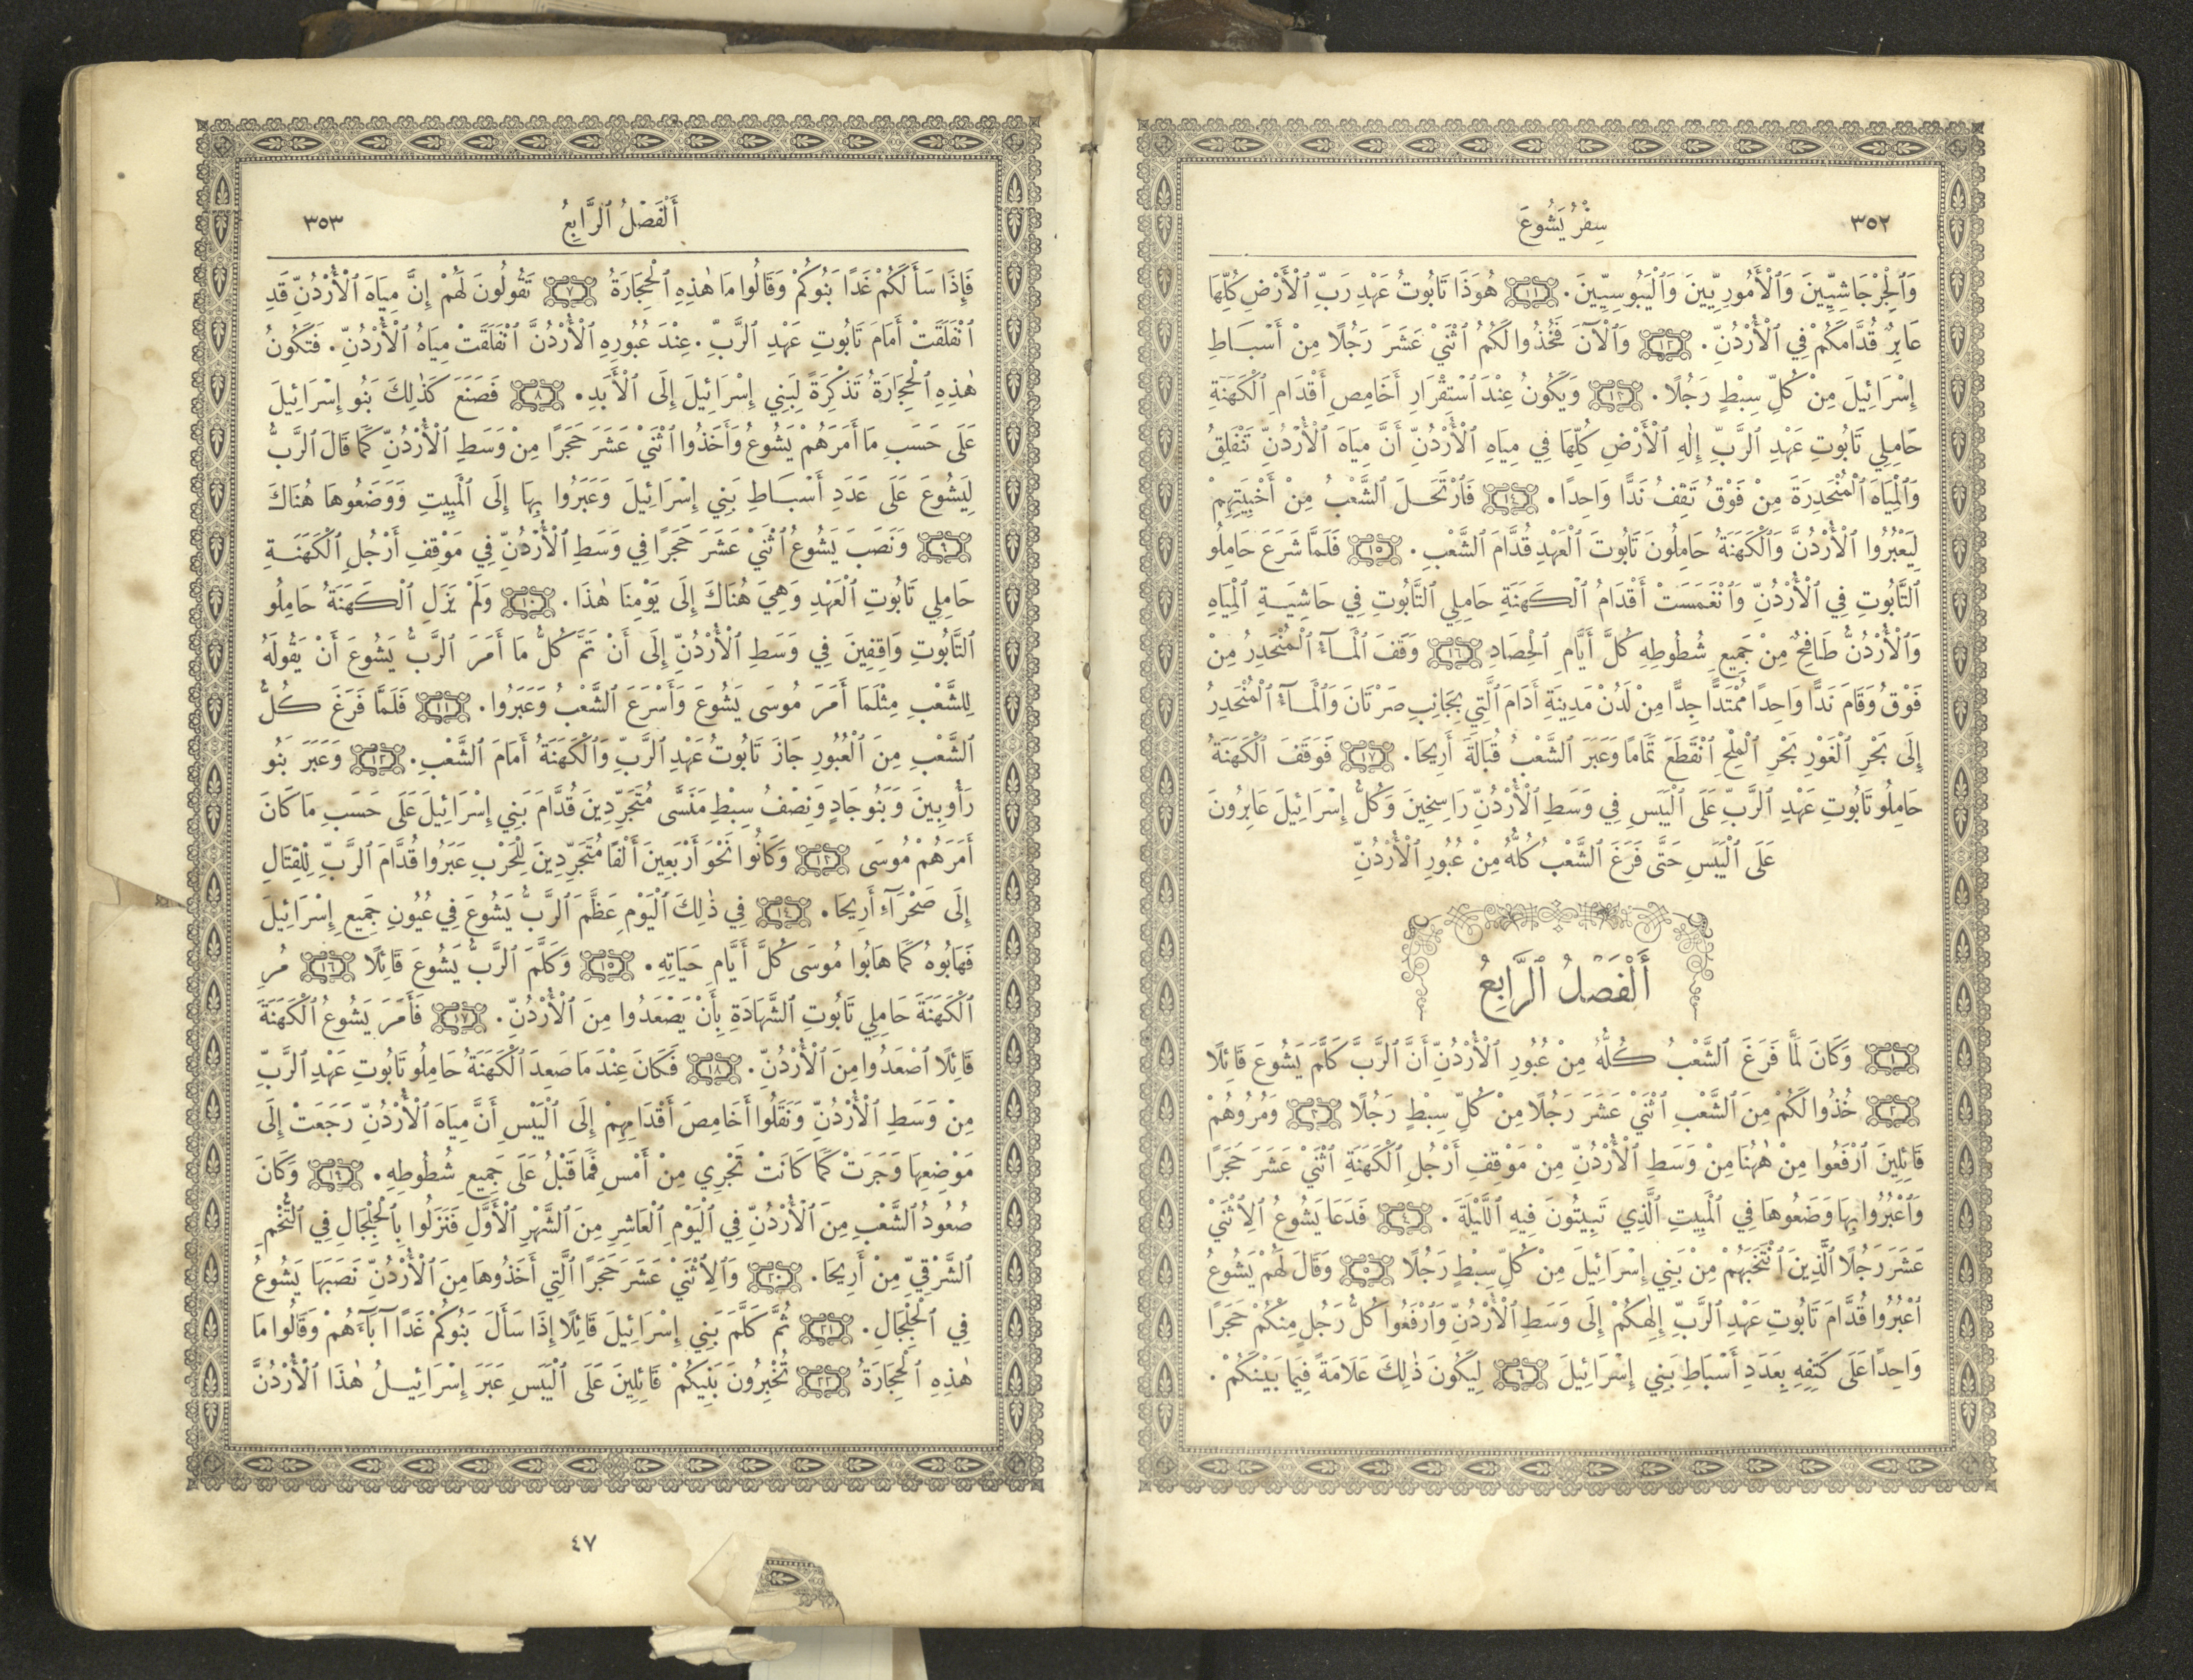 ٣٥٢
سِفْرُ يَشُوعَ
وَٱلْجِرْجَاشِيِّينَ وَٱلْأَمُورِيِّينَ وَٱلْيَبُوسِيِّينَ. ١١ هُوَذَا تَابُوتُ عَهْدِ رَبِّ ٱلْأَرْضِ كُلِّهَا
عَابِرٌ قُدَّامَكُمْ فِي ٱلْأُرْدُنِّ. ١٢ وَٱلْآنَ فَخُذُوا لَكُمُ ٱثْنَيْ عَشَرَ رَجُلًا مِنْ أَسْبَاطِ
إِسْرَائِيلَ مِنْ كُلِّ سِبْطٍ رَجُلًا. ١٣ وَيَكُونُ عِنْدَ ٱسْتِقْرَارِ أَخَامِصِ أَقْدَامِ ٱلْكَهَنَةِ
حَامِلِي تَابُوتِ عَهْدِ ٱلرَّبِّ إِلٰهِ ٱلْأَرْضِ كُلِّهَا فِي مِيَاهِ ٱلْأُرْدُنِّ أَنَّ مِيَاهَ ٱلْأُرْدُنِّ تَنْفَلِقُ
وَٱلْمِيَاهَ ٱلْمُنْحَدِرَةَ مِنْ فَوْقُ تَقِفُ نَدًّا وَاحِدًا. ١٤ فَٱرْتَحَلَ ٱلشَّعْبُ مِنْ أَخْبِيَتِهِمْ
لِيَعْبُرُوا ٱلْأُرْدُنَّ وَٱلْكَهَنَةُ حَامِلُونَ تَابُوتَ ٱلْعَهْدِ قُدَّامَ ٱلشَّعْبِ. ١٥ فَلَمَّا شَرَعَ حَامِلُو
ٱلتَّابُوتِ فِي ٱلْأُرْدُنِّ وَٱنْغَمَسَتْ أَقْدَامُ ٱلْكَهَنَةِ حَامِلِي ٱلتَّابُوتِ فِي حَاشِيَةِ ٱلْمِيَاهِ
وَٱلْأُرْدُنُّ طَافِحٌ مِنْ جَمِيعِ شُطُوطِهِ كُلَّ أَيَّامِ ٱلْحِصَادِ ١٦ وَقَفَ ٱلْمَآءُ ٱلْمُنْحَدِرُ مِنْ
فَوْقُ وَقَامَ نَدًّا وَاحِدًا مُمْتَدًّا جِدًّا مِنْ لَدُنْ مَدِينَةِ أَدَامَ ٱلَّتِي بِجَانِبِ صَرْتَانَ وَٱلْمَآءُ ٱلْمُنْحَدِرُ
إِلَى بَحْرِ ٱلْغَوْرِ بَحْرِ ٱلْمِلْحِ ٱنْقَطَعَ تَمَامًا وَعَبَرَ ٱلشَّعْبُ قُبَالَةَ أَرِيحَا. ١٧ فَوَقَفَ ٱلْكَهَنَةُ
حَامِلُو تَابُوتِ عَهْدِ ٱلرَّبِّ عَلَى ٱلْيَبَسِ فِي وَسَطِ ٱلْأُرْدُنِّ رَاسِخِينَ وَكُلُّ إِسْرَائِيلَ عَابِرُونَ
عَلَى ٱلْيَبَسِ حَتَّى فَرَغَ ٱلشَّعْبُ كُلُّهُ مِنْ عُبُورِ ٱلْأُرْدُنِّ
أَلْفَصْلُ ٱلرَّابِعُ
١ وَكَانَ لَمَّا فَرَغَ ٱلشَّعْبُ كُلُّهُ مِنْ عُبُورِ ٱلْأُرْدُنِّ أَنَّ ٱلرَّبَّ كَلَّمَ يَشُوعَ قَائِلًا
٢ خُذُوا لَكُمْ مِنَ ٱلشَّعْبِ ٱثْنَيْ عَشَرَ رَجُلًا مِنْ كُلِّ سِبْطٍ رَجُلًا ٣ وَمُرُوهُمْ
قَائِلِينَ ٱرْفَعُوا مِنْ هٰهُنَا مِنْ وَسَطِ ٱلْأُرْدُنِّ مِنْ مَوْقِفِ أَرْجُلِ ٱلْكَهَنَةِ ٱثْنَيْ عَشَرَ حَجَرًا
وَٱعْبُرُوا بِهَا وَضَعُوهَا فِي ٱلْمَبِيتِ ٱلَّذِي تَبِيتُونَ فِيهِ ٱللَّيْلَةَ. ٤ فَدَعَا يَشُوعُ ٱلِٱثْنَيْ
عَشَرَ رَجُلًا ٱلَّذِينَ ٱنْتَخَبَهُمْ مِنْ بَنِي إِسْرَائِيلَ مِنْ كُلِّ سِبْطٍ رَجُلًا ٥ وَقَالَ لَهُمْ يَشُوعُ
ٱعْبُرُوا قُدَّامَ تَابُوتِ عَهْدِ ٱلرَّبِّ إِلٰهِكُمْ إِلَى وَسَطِ ٱلْأُرْدُنِّ وَٱرْفَعُوا كُلُّ رَجُلٍ مِنْكُمْ حَجَرًا
وَاحِدًا عَلَى كَتِفِهِ بِعَدَدِ أَسْبَاطِ بَنِي إِسْرَائِيلَ ٦ لِيَكُونَ ذٰلِكَ عَلَامَةً فِيمَا بَيْنَكُمْ.
أَلْفَصْلُ ٱلرَّابِعُ
٣٥٣
فَإِذَا سَأَلَكُمْ غَدًا بَنُوكُمْ وَقَالُوا مَا هٰذِهِ ٱلْحِجَارَةُ ٧ تَقُولُونَ لَهُمْ إِنَّ مِيَاهَ ٱلْأُرْدُنِّ قَدِ
ٱنْفَلَقَتْ أَمَامَ تَابُوتِ عَهْدِ ٱلرَّبِّ. عِنْدَ عُبُورِهِ ٱلْأُرْدُنَّ ٱنْفَلَقَتْ مِيَاهُ ٱلْأُرْدُنِّ. فَتَكُونُ
هٰذِهِ ٱلْحِجَارَةُ تَذْكِرَةً لِبَنِي إِسْرَائِيلَ إِلَى ٱلْأَبَدِ. ٨ فَصَنَعَ كَذٰلِكَ بَنُو إِسْرَائِيلَ
عَلَى حَسَبِ مَا أَمَرَهُمْ يَشُوعُ وَأَخَذُوا ٱثْنَيْ عَشَرَ حَجَرًا مِنْ وَسَطِ ٱلْأُرْدُنِّ كَمَا قَالَ ٱلرَّبُّ
لِيَشُوعَ عَلَى عَدَدِ أَسْبَاطِ بَنِي إِسْرَائِيلَ وَعَبَرُوا بِهَا إِلَى ٱلْمَبِيتِ وَوَضَعُوهَا هُنَاكَ
٩ وَنَصَبَ يَشُوعُ ٱثْنَيْ عَشَرَ حَجَرًا فِي وَسَطِ ٱلْأُرْدُنِّ فِي مَوْقِفِ أَرْجُلِ ٱلْكَهَنَةِ
حَامِلِي تَابُوتِ ٱلْعَهْدِ وَهِيَ هُنَاكَ إِلَى يَوْمِنَا هٰذَا. ١٠ وَلَمْ يَزَلِ ٱلْكَهَنَةُ حَامِلُو
ٱلتَّابُوتِ وَاقِفِينَ فِي وَسَطِ ٱلْأُرْدُنِّ إِلَى أَنْ تَمَّ كُلُّ مَا أَمَرَ ٱلرَّبُّ يَشُوعَ أَنْ يَقُولَهُ
لِلشَّعْبِ مِثْلَمَا أَمَرَ مُوسَى يَشُوعَ وَأَسْرَعَ ٱلشَّعْبُ وَعَبَرُوا. ١١ فَلَمَّا فَرَغَ كُلُّ
ٱلشَّعْبِ مِنَ ٱلْعُبُورِ جَازَ تَابُوتُ عَهْدِ ٱلرَّبِّ وَٱلْكَهَنَةُ أَمَامَ ٱلشَّعْبِ. ١٢ وَعَبَرَ بَنُو
رَأُوبِينَ وَبَنُو جَادٍ وَنِصْفُ سِبْطِ مَنَسَّى مُتَجَرِّدِينَ قُدَّامَ بَنِي إِسْرَائِيلَ عَلَى حَسَبِ مَا كَانَ
أَمَرَهُمْ مُوسَى ١٣ وَكَانُوا نَحْوَ أَرْبَعِينَ أَلْفًا مُتَجَرِّدِينَ لِلْحَرْبِ عَبَرُوا قُدَّامَ ٱلرَّبِّ لِلْقِتَالِ
إِلَى صَحْرَآءِ أَرِيحَا. ١٤ فِي ذٰلِكَ ٱلْيَوْمِ عَظَّمَ ٱلرَّبُّ يَشُوعَ فِي عُيُونِ جَمِيعِ إِسْرَائِيلَ
فَهَابُوهُ كَمَا هَابُوا مُوسَى كُلَّ أَيَّامِ حَيَاتِهِ. ١٥ وَكَلَّمَ ٱلرَّبُّ يَشُوعَ قَائِلًا ١٦ مُرِ
ٱلْكَهَنَةَ حَامِلِي تَابُوتِ ٱلشَّهَادَةِ بِأَنْ يَصْعَدُوا مِنَ ٱلْأُرْدُنِّ. ١٧ فَأَمَرَ يَشُوعُ ٱلْكَهَنَةَ
قَائِلًا ٱصْعَدُوا مِنَ ٱلْأُرْدُنِّ. ١٨ فَكَانَ عِنْدَ مَا صَعِدَ ٱلْكَهَنَةُ حَامِلُو تَابُوتِ عَهْدِ ٱلرَّبِّ
مِنْ وَسَطِ ٱلْأُرْدُنِّ وَنَقَلُوا أَخَامِصَ أَقْدَامِهِمْ إِلَى ٱلْيَبَسِ أَنَّ مِيَاهَ ٱلْأُرْدُنِّ رَجَعَتْ إِلَى
مَوْضِعِهَا وَجَرَتْ كَمَا كَانَتْ تَجْرِي مِنْ أَمْسِ فَمَا قَبْلُ عَلَى جَمِيعِ شُطُوطِهِ. ١٩ وَكَانَ
صُعُودُ ٱلشَّعْبِ مِنَ ٱلْأُرْدُنِّ فِي ٱلْيَوْمِ ٱلْعَاشِرِ مِنَ ٱلشَّهْرِ ٱلْأَوَّلِ فَنَزَلُوا بِٱلْجِلْجَالِ فِي ٱلتُّخْمِ
ٱلشَّرْقِيِّ مِنْ أَرِيحَا. ٢٠ وَٱلِٱثْنَيْ عَشَرَ حَجَرًا ٱلَّتِي أَخَذُوهَا مِنَ ٱلْأُرْدُنِّ نَصَبَهَا يَشُوعُ
فِي ٱلْجِلْجَالِ. ٢١ ثُمَّ كَلَّمَ بَنِي إِسْرَائِيلَ قَائِلًا إِذَا سَأَلَ بَنُوكُمْ غَدًا آبَآءَهُمْ وَقَالُوا مَا
هٰذِهِ ٱلْحِجَارَةُ ٢٢ تُخْبِرُونَ بَنِيكُمْ قَائِلِينَ عَلَى ٱلْيَبَسِ عَبَرَ إِسْرَائِيلُ هٰذَا ٱلْأُرْدُنَّ
٤٧